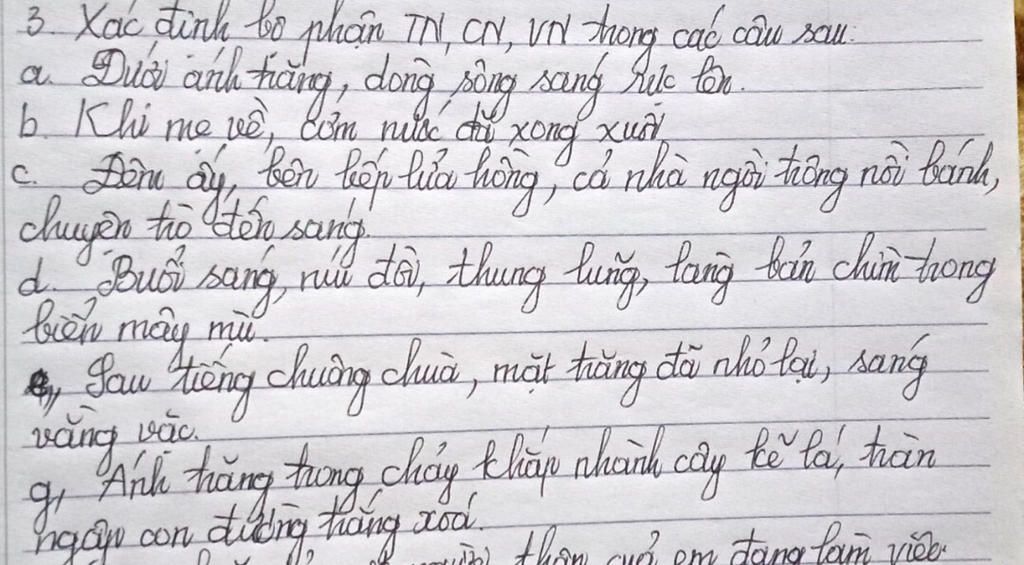 3. Xác định bộ phận TN, CN, VN trong các câu sau:
a. Dưới ánh trăng, dòng sông sáng rực lên.
b. Khi mẹ về, cơm nước đã xong xuôi
c. Đêm ấy, bên bếp lửa hồng, cả nhà ngồi trông nồi bánh,
chuyện trò đến sáng.
d. Buổi sáng, núi đồi, thung lũng, làng bản chìm trong
biển mây mù.
e, Sau tiếng chuông chùa, mặt trăng đã nhỏ lại, sáng
vằng vặc.
g, Ánh trăng trong chảy khắp nhành cây kẽ lá, tràn
ngập con đường trắng xoá.
thân của em đang làm việc